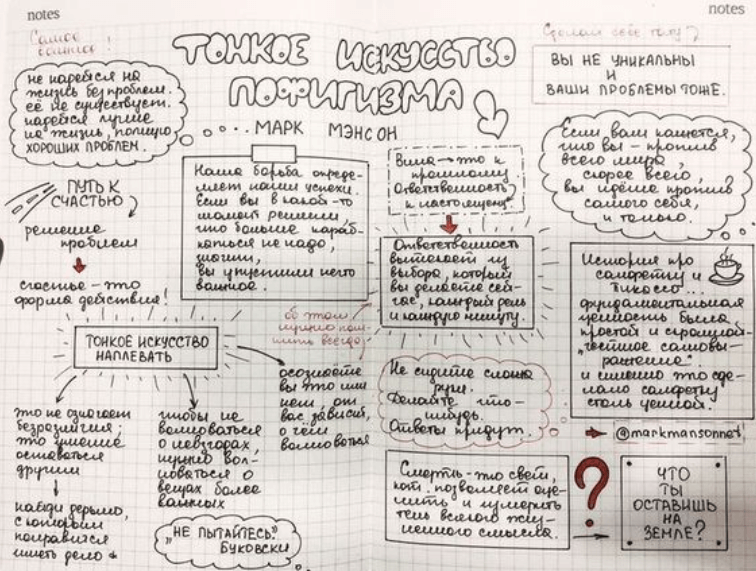 notes
notes
Самое важное!
ТОНКОЕ ИСКУССТВО
ПОФИГИЗМА
... МАРК МЭНСОН
Сделай себе
не надейся на
жизнь без проблем.
её не существует.
надейся лучше
на жизнь, полную
ХОРОШИХ ПРОБЛЕМ.
ПУТЬ К
СЧАСТЬЮ
решение
проблем
счастье - это
форма действия!
Наша борьба опреде-
ляет наши успехи.
Если вы в какой-то
момент решили,
что больше караб-
каться не надо,
значит,
вы упустили нечто
важное.
Вина → это к
прошлому.
Ответственность
к настоящему
Ответственность
вытекает из
выбора, который
вы делаете сей-
час, каждый день
и каждую минуту.
об этом
нужно пом-
нить всегда
ВЫ НЕ УНИКАЛЬНЫ
И
ВАШИ ПРОБЛЕМЫ ТОЖЕ.
Если вам кажется,
что вы - против
всего мира,
скорее всего,
вы идёте против
самого себя,
и только.
История про
салфетку и
Пикассо...
фундаментальная
ценность была
простой и скромной:
"честное самовы-
ражение".
и именно это сде-
лало салфетку
столь ценной.
@markmansonnet
ТОНКОЕ ИСКУССТВО
НАПЛЕВАТЬ
это не означает
безразличия;
это умение
оставаться
другим
найди дерьмо,
с которым
понравится
иметь дело
чтобы не
волноваться
о невзгодах
нужно вол-
новаться о
вещах более
важных
осознаёте
вы это или
нет, от
вас зависит,
о чём
волноваться
Не сидите сложа
руки.
Делайте что-
нибудь.
Ответы придут.
"НЕ ПЫТАЙТЕСЬ."
БУКОВСКИ
Смерть - это свет,
кот. позволяет оце-
нить и измерить
тень всякого жиз-
ненного смысла.
?
ЧТО
ТЫ
ОСТАВИШЬ
НА
ЗЕМЛЕ?